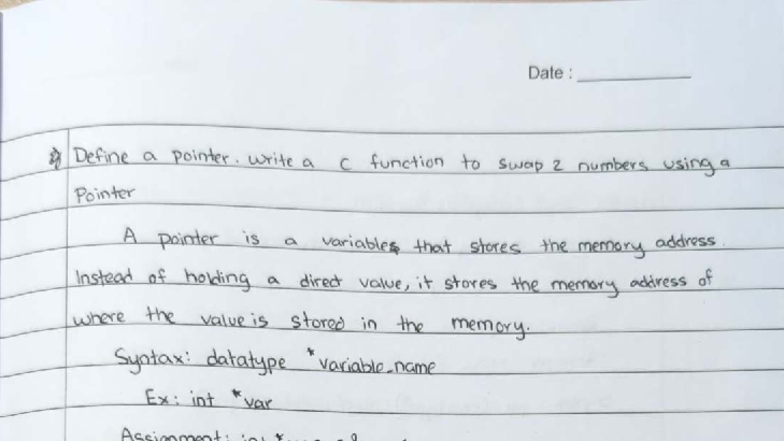 Date :
Define a pointer. Write a C function to swap 2 numbers using a
Pointer
A pointer is a variables that stores the memory address.
Instead of holding a direct value, it stores the memory address of
where the value is stored in the memory.
Syntax: datatype *variable_name
Ex: int *var
Assignment: int